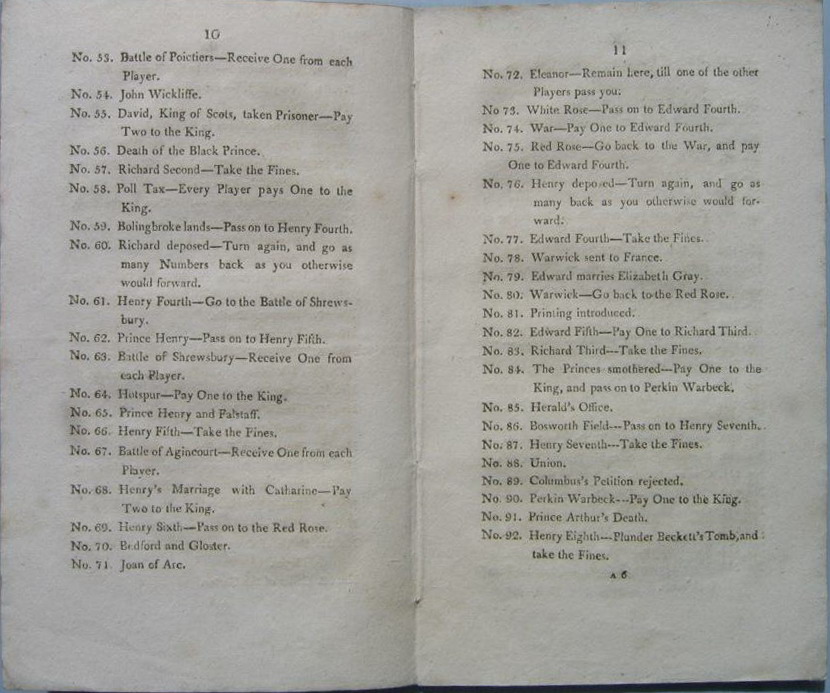 10
No. 53. Battle of Poictiers—Receive One from each
Player.
No. 54. John Wickliffe.
No. 55. David, King of Scots, taken Prisoner—Pay
Two to the King.
No. 56. Death of the Black Prince.
No. 57. Richard Second—Take the Fines.
No. 58. Poll Tax—Every Player pays One to the
King.
No. 59. Bolingbroke lands—Pass on to Henry Fourth.
No. 60. Richard deposed—Turn again, and go as
many Numbers back as you otherwise
would forward.
No. 61. Henry Fourth—Go to the Battle of Shrews-
bury.
No. 62. Prince Henry—Pass on to Henry Fifth.
No. 63. Battle of Shrewsbury—Receive One from
each Player.
No. 64. Hotspur—Pay One to the King.
No. 65. Prince Henry and Falstaff.
No. 66. Henry Fifth—Take the Fines.
No. 67. Battle of Agincourt—Receive One from each
Player.
No. 68. Henry's Marriage with Catharine—Pay
Two to the King.
No. 69. Henry Sixth—Pass on to the Red Rose.
No. 70. Bedford and Gloster.
No. 71. Joan of Arc.
11
No. 72. Eleanor—Remain here, till one of the other
Players pass you.
No 73. White Rose—Pass on to Edward Fourth.
No. 74. War—Pay One to Edward Fourth.
No. 75. Red Rose—Go back to the War, and pay
One to Edward Fourth.
No. 76. Henry deposed—Turn again, and go as
many back as you otherwise would for-
ward.
No. 77. Edward Fourth—Take the Fines.
No. 78. Warwick sent to France.
No. 79. Edward marries Elizabeth Gray.
No. 80. Warwick—Go back to the Red Rose.
No. 81. Printing introduced.
No. 82. Edward Fifth—Pay One to Richard Third.
No. 83. Richard Third---Take the Fines.
No. 84. The Princes smothered—Pay One to the
King, and pass on to Perkin Warbeck.
No. 85. Herald's Office.
No. 86. Bosworth Field---Pass on to Henry Seventh.
No. 87. Henry Seventh---Take the Fines.
No. 88. Union.
No. 89. Columbus's Petition rejected.
No. 90. Perkin Warbeck---Pay One to the King.
No. 91. Prince Arthur's Death.
No. 92. Henry Eighth---Plunder Beckett's Tomb, and
take the Fines.
A 6